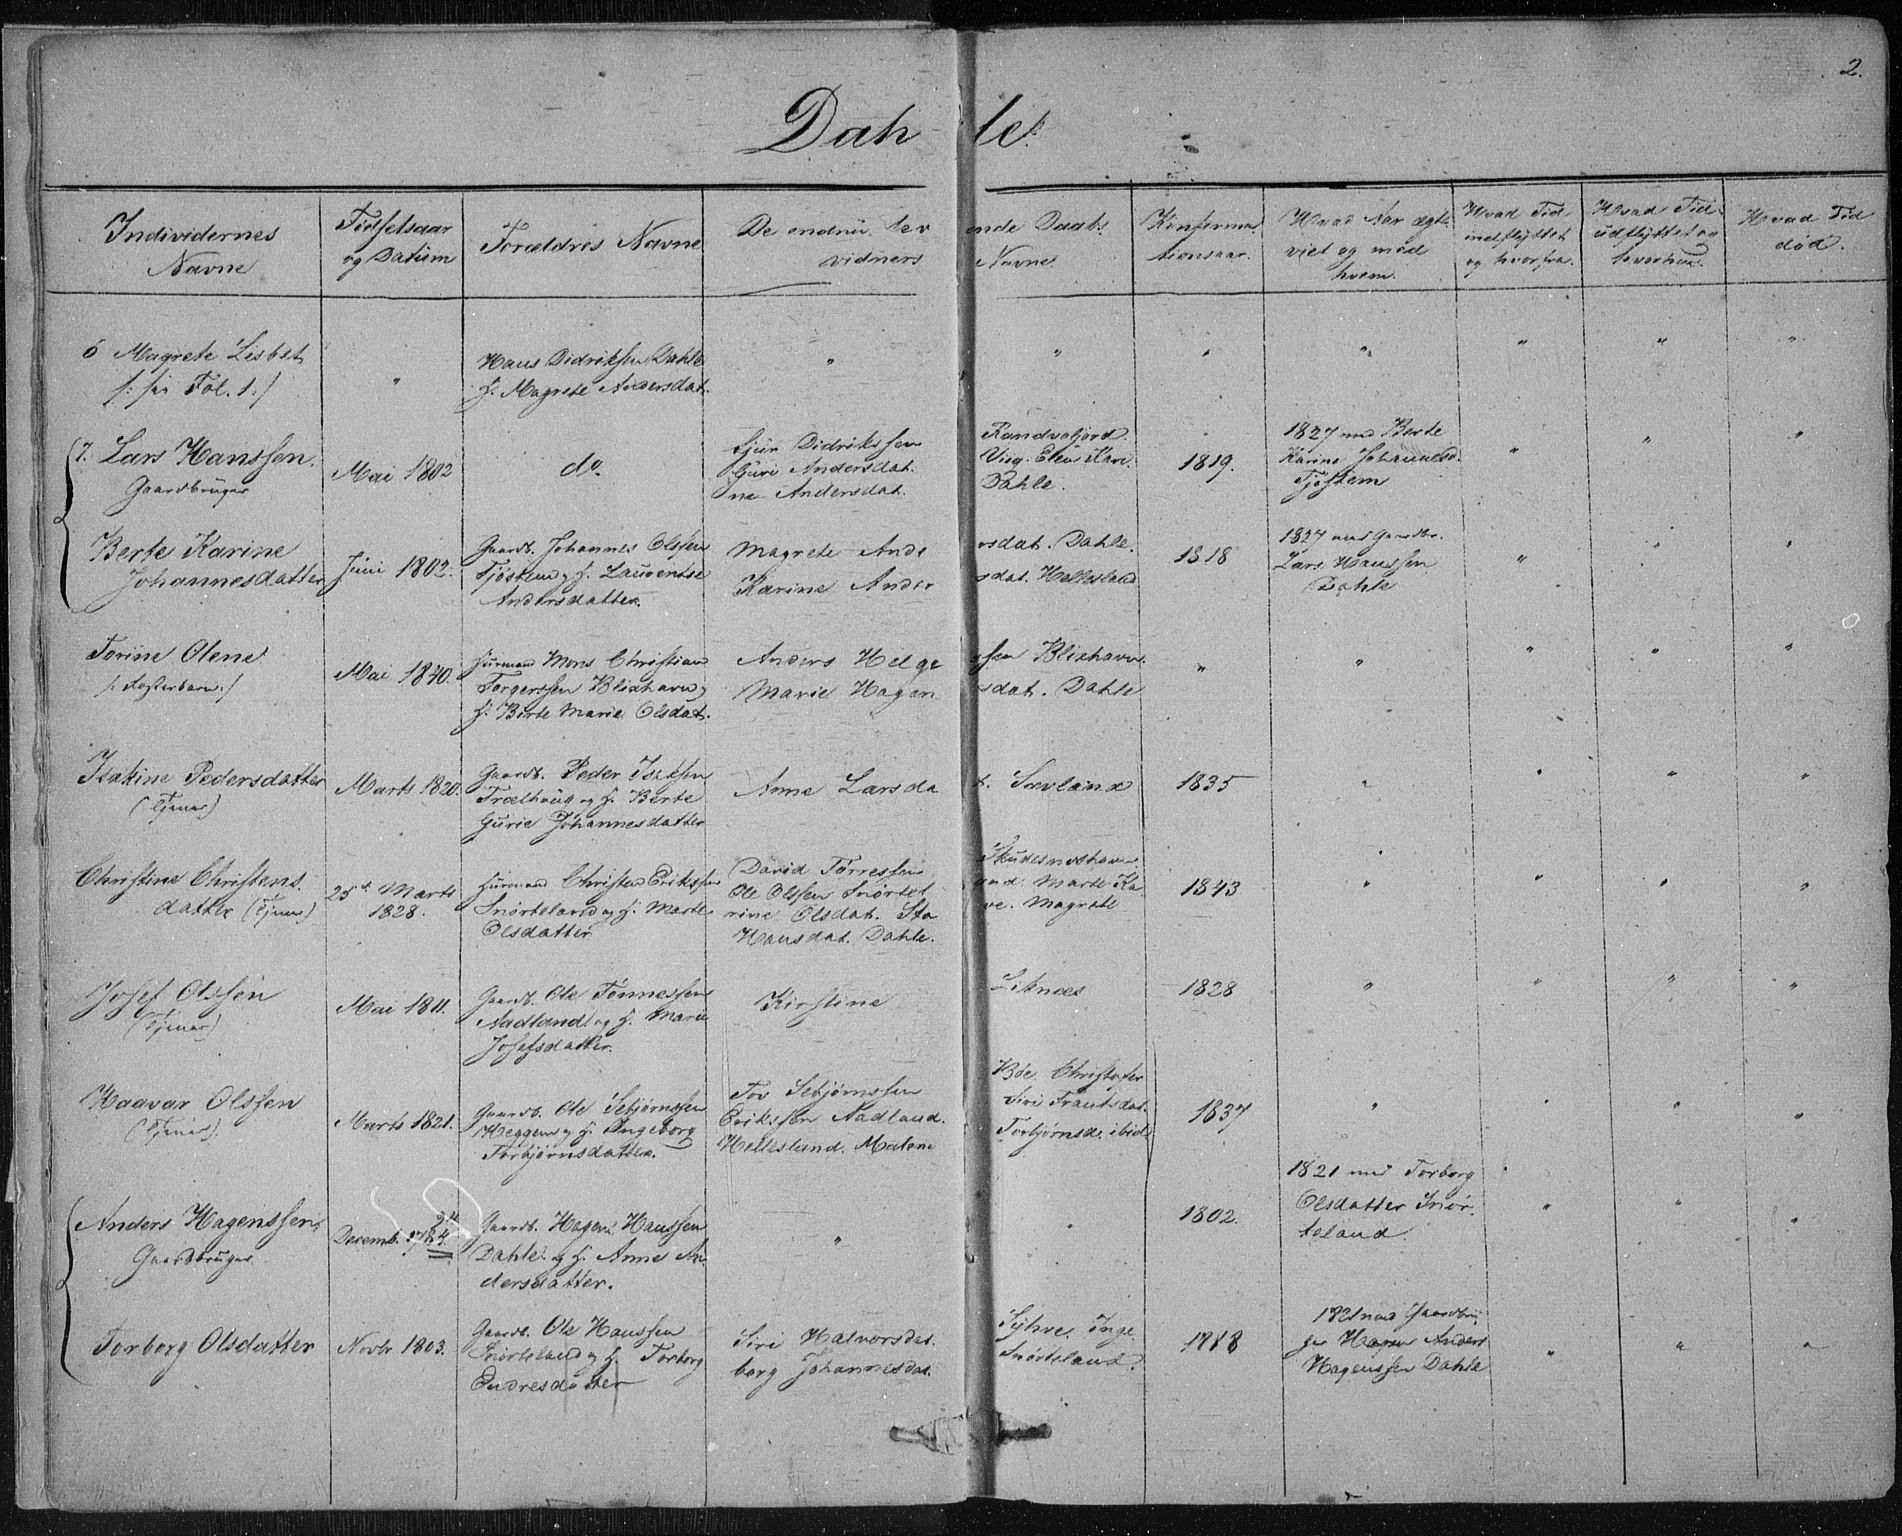 2.
Dahle.
Individernes Navne
Fødselsaar og Datum
Forældres Navne
De endnu levende Daabs vidners Navne
Konfirmationsaar.
Hvad Aar ægteviet og med hvem
Hvad Tid indflyttet og hvorfra.
Hvad Tid udflyttet og hvorhen.
Hvad Tid død.
6 Magrete Lisbet
Hans Didriksen Dahle
/: see Fol. 1 :/
H. Magrete Andersdat.
7. Lars Hanssen.
Gaardbruger
Mai 1802
do
Sjur Didrikssen Randvafjord.
Guri Andersdat. Viig. Elen Kari
ne Andersdat. Dahle.
1819.
1827 med Berte
Karine Johannesd.
Tjøstem
Berte Karine
Johannesdatter
Juni 1802.
Gaardb. Johannes Olssen
Tjøstem og H. Laurentse
Andersdatter.
Magrete Andersdat. Dahle.
Karine Andersdat. Hellesland
1818
1827 med Gaardbr.
Lars Hanssen
Dahle
Torine Olene
/: Fosterbarn :/
Mai 1840.
Huusmand Mons Christian
Torgerssen Blixhavn og
H. Berte Marie Olsdat.
Anders Helgessen Blixhavn.
Marie Hagensdat. Dahle
Isakine Pedersdatter
(Tjener)
Marts 1820.
Gaardb. Peder Isaksen
Trælhaug og H. Berte
Gurie Johannesdatter
Anne Larsdat. Sævland
1835
Christine Christens
datter (Tjener)
25de Marts
1828.
Huusmand Christen Erikssen
Snørteland og H. Marte
Olsdatter
David Tørressen Skudesneshavn.
Ole Olssen Snørteland. Marte Ka
rine Olsdat. Stave. Magrete
Hansdat. Dahle.
1843
Josef Olssen
(Tjener)
Mai 1811.
Gaardb. Ole Tønnessen
Aadland og H. Marie
Josefsdatter.
Kirstine Liknes
1828
Haavar Olssen
(Tjener)
Marts 1821.
Gaardb. Ole Sebjørnssen
Heggem og H. Ingeborg
Torbjørnsdatter.
Tov Sebjørnssen Bøe. Christofer
Erikssen Aadland. Siri Trautsdat.
Hellesland. Malene Torbjørnsd. ibid
1837
Anders Hagenssen,
Gaardbruger
Decemb. 1784.
Gaardb. Hagen Hanssen
Dahle og H. Anne An
dersdatter.
1802.
1821 med Torborg
Olsdatter Snør
teland.
Torborg Olsdatter
Novbr 1803.
Gaardb. Ole Hanssen
Snørteland og H. Torborg
Endresdatter
Siri Halvorsdat. Syhve. Inge
borg Johannesdat. Snørteland.
1818
1821 med Gaardbru
ger Anders
Hagenssen Dahle